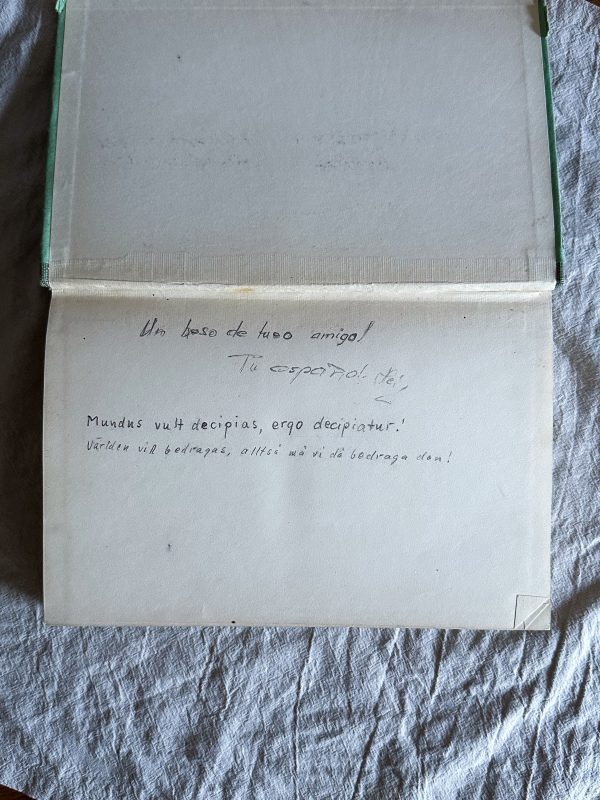 Un beso de tuo amigo!
Tu español.
Mundus vult decipias, ergo decipiatur!
Världen vill bedragas, alltså må vi då bedraga den!